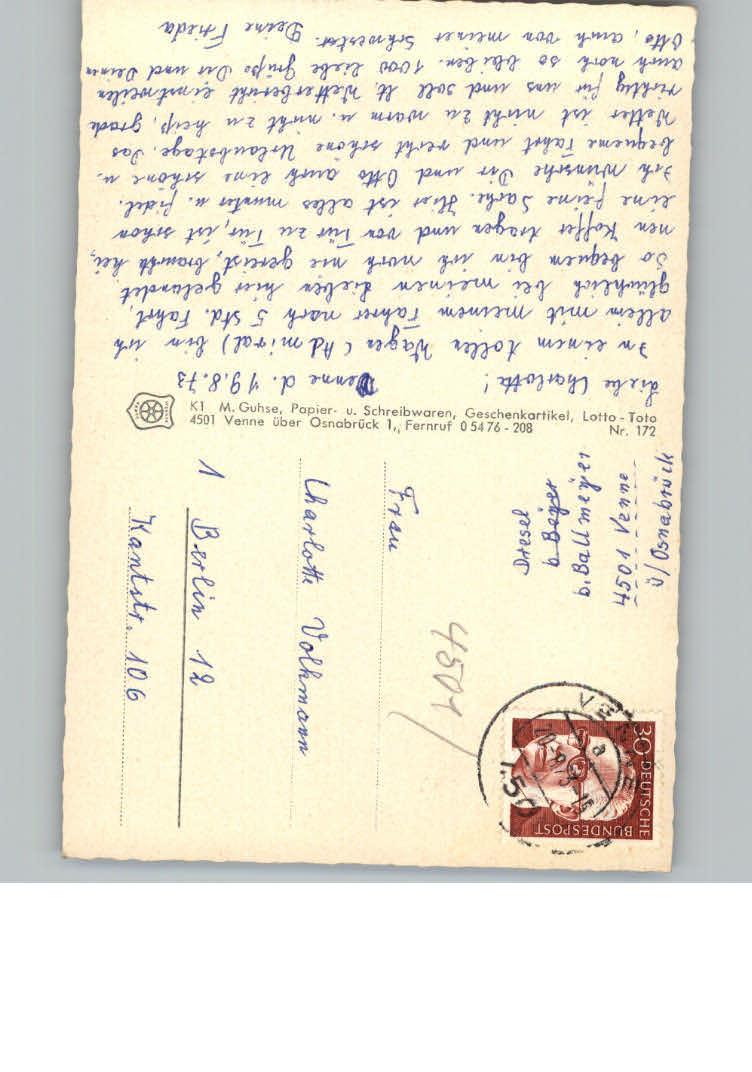 Liebe Charlotte! Venne d. 19.8.73
In einem tollen Wagen (Admiral) bin ich
allein mit meinem Fahrer nach 5 Std. Fahrt,
glücklich bei meinen Lieben hier gelandet.
So bequem bin ich noch nie gereist, brauch kei,
nen Koffer tragen und von Tür zu Tür, ist schon
eine feine Sache. Hier ist alles munter u. fidel.
Ich wünsche Dir und Otto auch eine schöne u.
bequeme Fahrt und recht schöne Urlaubstage. Das
Wetter ist nicht zu warm u. nicht zu heiß, grade
richtig für uns und soll lt. Wetterbericht einstweilen
auch noch so bleiben. 1000 liebe Grüße Dir und Deinen
Otto, auch von meiner Schwester. Deine Frieda
K1 M. Guhse, Papier- u. Schreibwaren, Geschenkartikel, Lotto-Toto
4501 Venne über Osnabrück 1, Fernruf 0 54 76 - 208 Nr. 172
Dresel
b. Beyer
b. Ballmeyer
4501 Venne
ü/Osnabrück
4501
Frau
Charlotte Volkmann
1 Berlin 12
Kantstr. 106
30 DEUTSCHE
BUNDESPOST